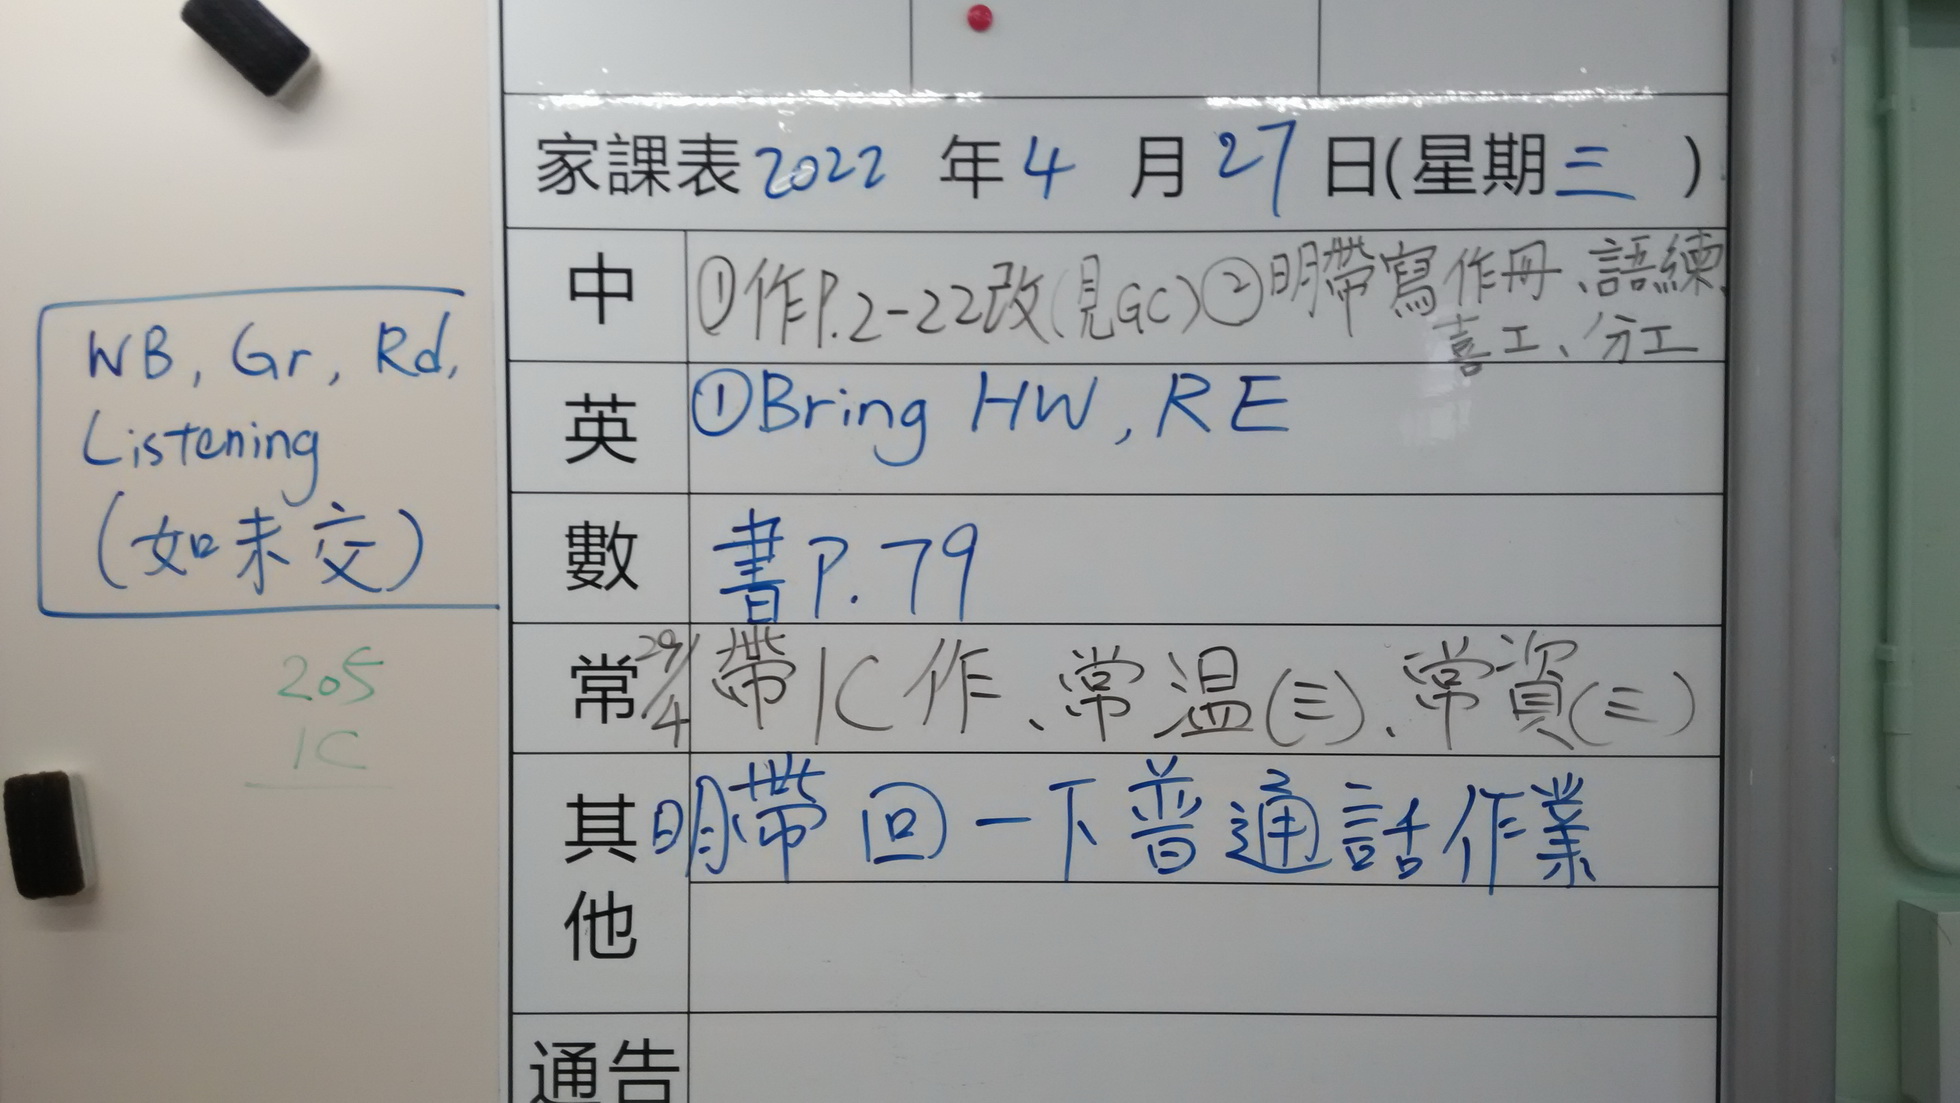 家課表 2022 年 4 月 27 日(星期三 )
中 ①作P.2-22改(見GC)②明帶寫作冊、語練、
喜工、分工
英 ①Bring HW, RE
數 書P.79
常 29/4 帶1C作、常温(三)、常資(三)
其他 明帶回一下普通話作業
通告
WB, Gr, Rd,
Listening
(如未交)
205
1C